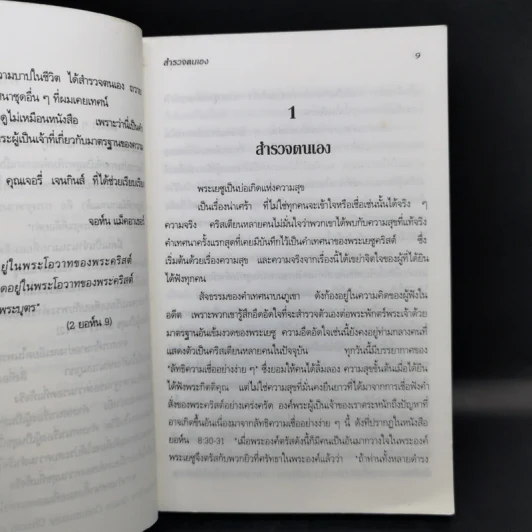 ความบาปในชีวิต ได้สำรวจตนเอง ถวาย
ทศนาชุดอื่น ๆ ที่ผมเคยเทศน์
ดูไม่เหมือนหนังสือ เพราะว่านี่เป็นคำ
พระผู้เป็นเจ้าที่เกี่ยวกับมาตรฐานของความ
คุณเจอรี่ เจนกินส์ ที่ได้ช่วยเรียบเรียง
จอห์น แม็คอาเธอร์
อยู่ในพระโอวาทของพระคริสต์
อยู่ในพระโอวาทของพระคริสต์
พระบุตร"
(2 ยอห์น 9)
สำรวจตนเอง 9
1
สำรวจตนเอง
พระเยซูเป็นบ่อเกิดแห่งความสุข
เป็นเรื่องน่าเศร้า ที่ไม่ใช่ทุกคนจะเข้าใจหรือเชื่อเช่นนั้นได้จริง ๆ
ความจริง คริสเตียนหลายคนไม่มั่นใจว่าพวกเขาได้พบกับความสุขที่แท้จริง
คำเทศนาครั้งแรกสุดที่เคยมีบันทึกไว้เป็นคำเทศนาของพระเยซูคริสต์ ซึ่ง
เริ่มต้นด้วยเรื่องความสุข และความจริงจากเรื่องนี้ได้เขย่าจิตใจของผู้ที่ได้ยิน
ได้ฟังทุกคน
สัจธรรมของคำเทศนาบนภูเขา ดังก้องอยู่ในความคิดของผู้ฟังใน
อดีต เพราะพวกเขารู้สึกอึดอัดใจที่จะสำรวจตัวเองต่อพระพักตร์พระเจ้าด้วย
มาตรฐานอันเข้มงวดของพระเยซู ความอึดอัดใจเช่นนี้ยังคงอยู่ท่ามกลางคนที่
แสดงตัวเป็นคริสเตียนหลายคนในปัจจุบัน ทุกวันนี้มีบรรยากาศของ
"ลัทธิความเชื่ออย่างง่าย ๆ" ซึ่งยอมให้คนได้ลิ้มลอง ความสุขขั้นต้นเมื่อได้ยิน
ได้ฟังพระกิตติคุณ แต่ไม่ใช่ความสุขที่มั่นคงยืนยาวที่ได้มาจากการเชื่อฟังคำ
สั่งของพระคริสต์อย่างเคร่งครัด องค์พระผู้เป็นเจ้าของเราตระหนักถึงปัญหาที่
อาจเกิดขึ้นอันเนื่องมาจากลัทธิความเชื่ออย่างง่าย ๆ นี้ ดังที่ปรากฏในหนังสือ
ยอห์น 8:30-31 "เมื่อพระองค์ตรัสดังนี้ก็มีคนเป็นอันมากวางใจในพระองค์
พระเยซูจึงตรัสกับพวกยิวที่ศรัทธาในพระองค์แล้วว่า 'ถ้าท่านทั้งหลายดำรง